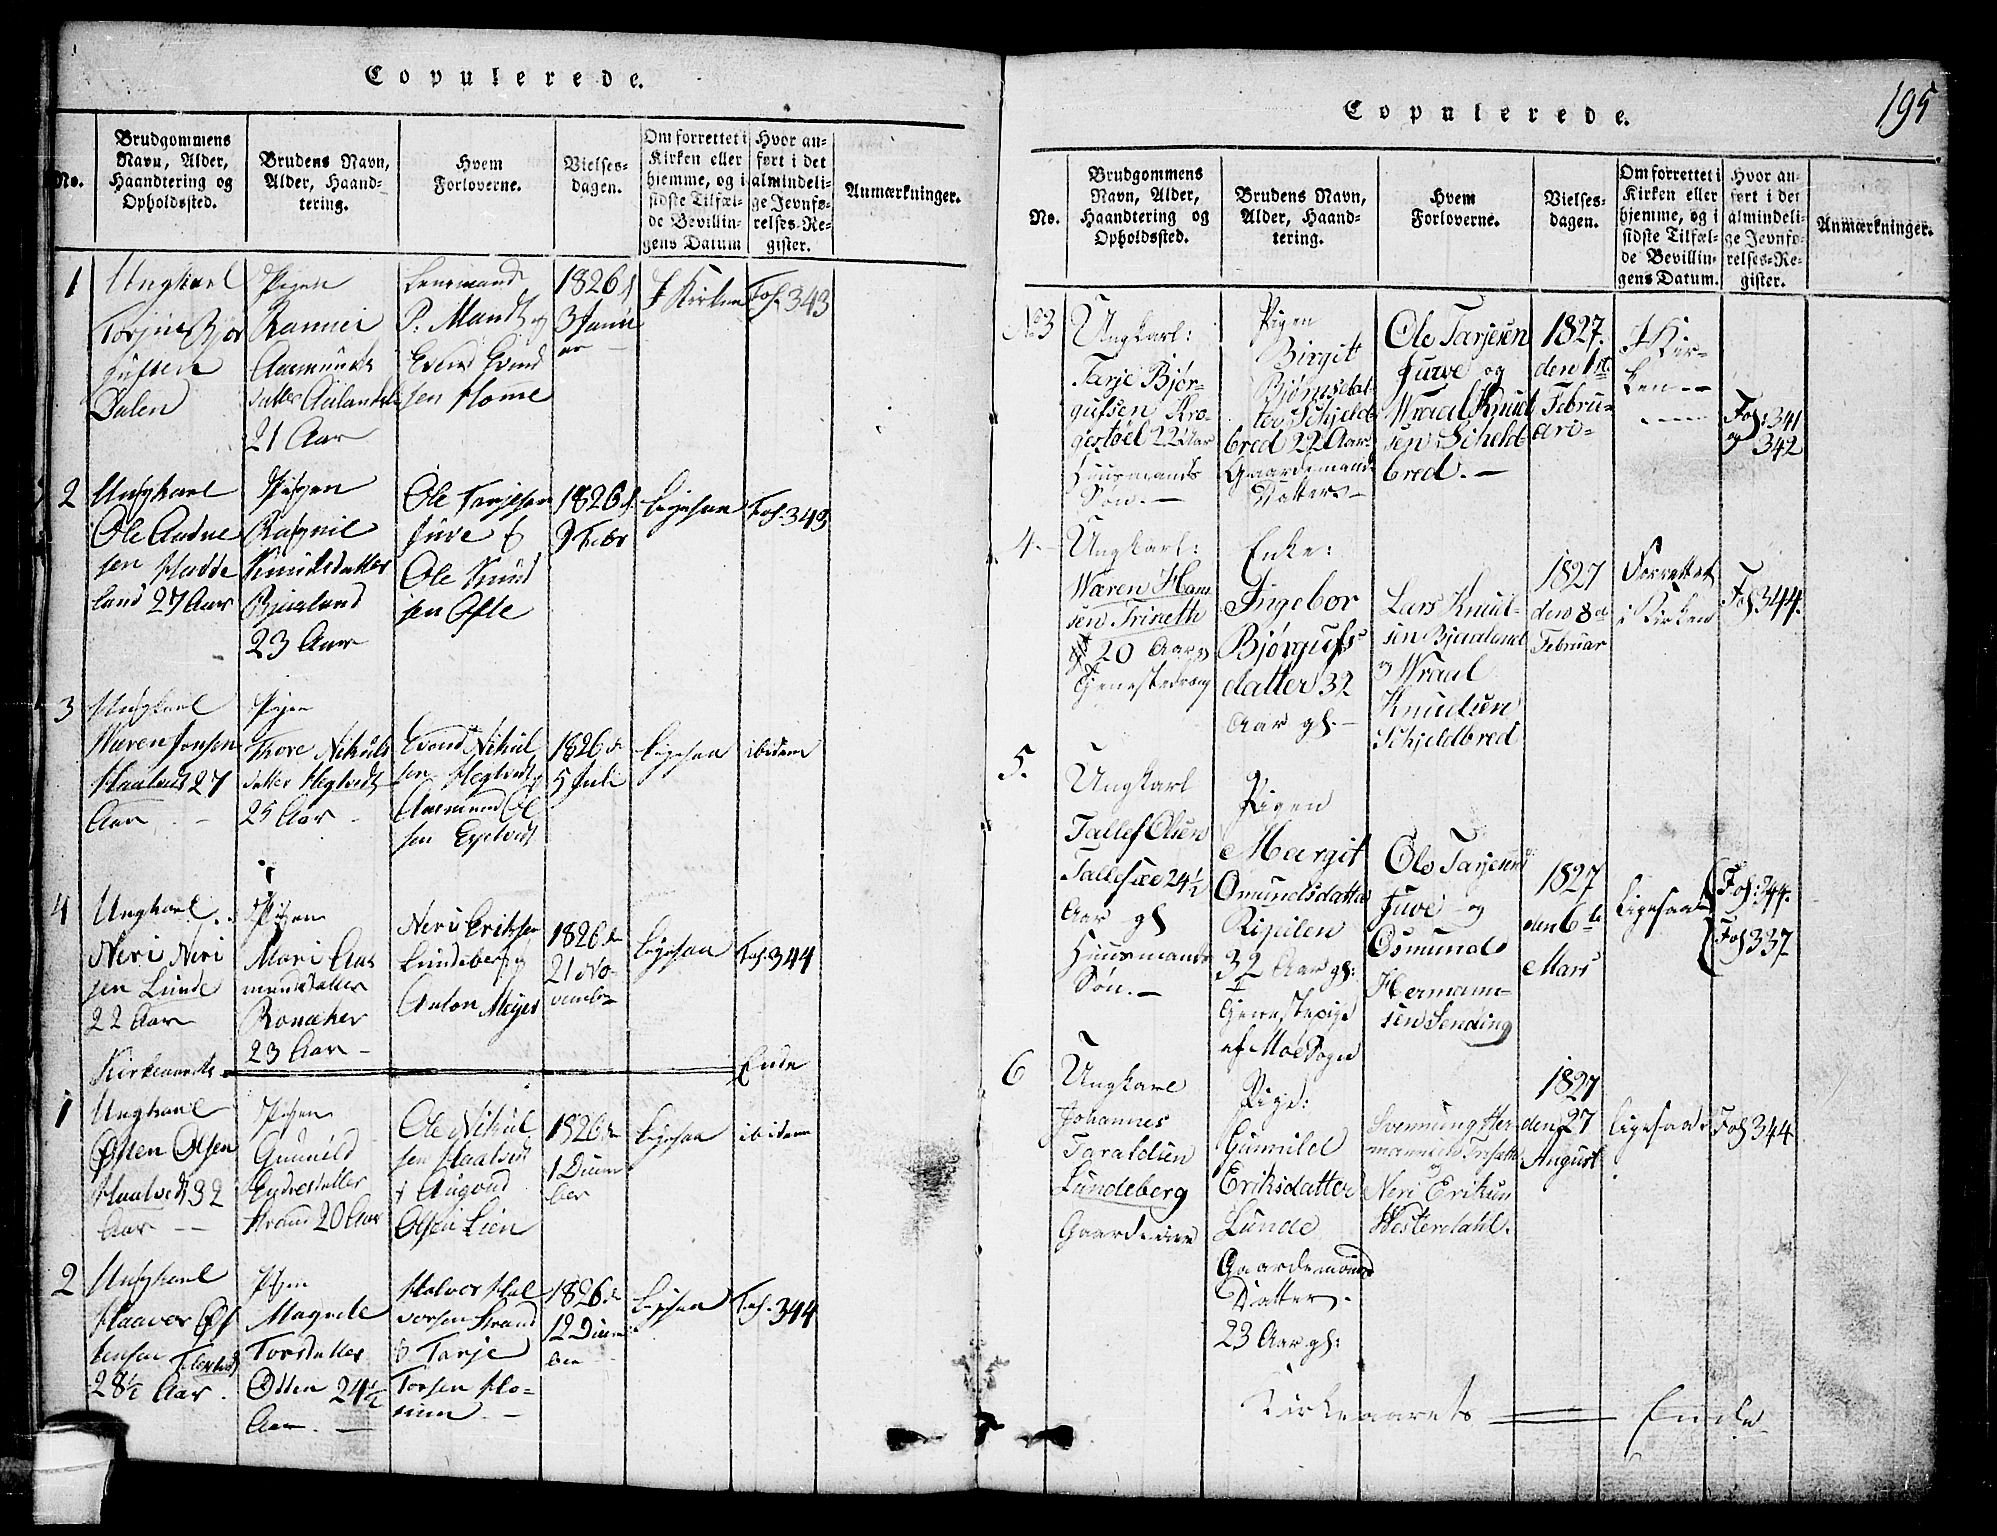 Copulerede.
No.
Brudgommens
Navn, Alder,
Haandtering og
Opholdssted.
Brudens Navn,
Alder, Haand-
tering.
Hvem
Forloverne.
Vielses-
dagen.
Om forrettet i
Kirken eller
hjemme, og i
sidste Tilfæl-
de Bevillin-
gens Datum
Hvor an-
ført i det
almindeli-
ge Jevnfø-
relses-Re-
gister.
Anmærkninger.
1
Ungkarl
Dalen
Pigen
Rannei
Aasmunds
datter
21 Aar
Lensmand
P. Mandt og
Evend Evend
sen Homme
1826 d
3 Janu
ar
I Kirken
Fol. 343
2
Ungkarl
Ole
sen Hadde
land 27 Aar
Pigen
Ragnil
Knudsdatter
Bjaaland
23 Aar
Ole Tarjesen
Juve &
Ole Knud
sen Ofte
1826 d.
9 Febr
Ligesaa
Fol. 343
3
Ungkarl
Wæren Jonsen
27
Aar
Pigen
Thore Nikuls
datter Heglvedt
25 Aar
Evend Nikul
sen Heglvedt
Aasmund Ol
sen
1826 d
5 Juli
Ligesaa
ibidem
4
Ungkarl
Neri Neri
sen Lunde
22 Aar
Pigen
Mari Aas
mundsdatter
23 Aar
Neri Eriksen
Lundeberg
Anton Meyer
1826 d
21 No
vember
Ligesaa
Fol. 344
Kirkeaarets
Ende
1
Ungkarl
Østen Olsen
32
Aar
Pigen
Gunnild
Strand 20 Aar
Ole Nikul
sen
& Augond
Olsen Lien
1826 d
1 Decem
ber
Ligesaa
ibidem
2
Ungkarl
Haaver
28½ Aar
Pigen
Margrete
Torsdatter
24½
Aar
Halvor Hal
vorsen Strand
& Tarje
Torsen
1826 d
12 Decem
ber
Ligesaa
Fol. 344
195
Copulerede.
No.
Brudgommens
Navn, Alder,
Haandtering og
Opholdssted.
Brudens Navn,
Alder, Haand-
tering.
Hvem
Forloverne.
Vielses-
dagen.
Om forrettet i
Kirken eller
hjemme, og i
sidste Tilfæl-
de Bevillin-
gens Datum.
Hvor an-
ført i det
almindeli-
ge Jevnfø-
relses-Re-
gister.
Anmærkninger.
No 3
Ungkarl:
Tarje Bjør-
gufsen Kro-
gestøel 22 Aar
Huusmands
Søn. —
Pigen
Birgit
Bjørnsdat-
ter Schjeld-
bred 22 Aar
Gaardemands
Datter —
Ole Tarjesen
Juve og
Wraal Knud
sen Scheld-
bred. —
1827.
den 1ste
Febru-
ari-
I Kir-
ken —
Fol: 341
og 342
4.
Ungkarl:
Wæren Han
sen Trineth
20 Aar
Tjenestedreng
Enke:
Ingebor
Bjørgufs-
datter 32
Aar gl. —
Lars Knud-
sen Bjaaland
og Wraal
Knudsen
Schjeldbred
1827
den 8de
Februar
Forrettet
i Kirken
Fol 344.
5.
Ungkarl
Tallef Olsen
Tallefsæe 24½
Aar gl
Huusmands
Søn. —
Pigen
Margit
Omundsdatter
Ripilen
32 Aar gl:
Tjenestepige
af Moe Sogn
Ole Tarjesen
Juve og
Osmund
Hermann-
sen Sending
1827
den 6te
Mars
Ligesaa
Fol: 344.
Fol 337.
6
Ungkarl
Johannes
Taraldsen
Lundeberg
Pige:
Gunnild
Eriksdatter
Lunde
Gaardemands
Datter.
23 Aar gl:
Svennung Her-
mannsen
og
Neri Eriksen
Westerdahl.
1827
den 27
August
Ligesaa
Fol 344
Kirkeaarets — Ende